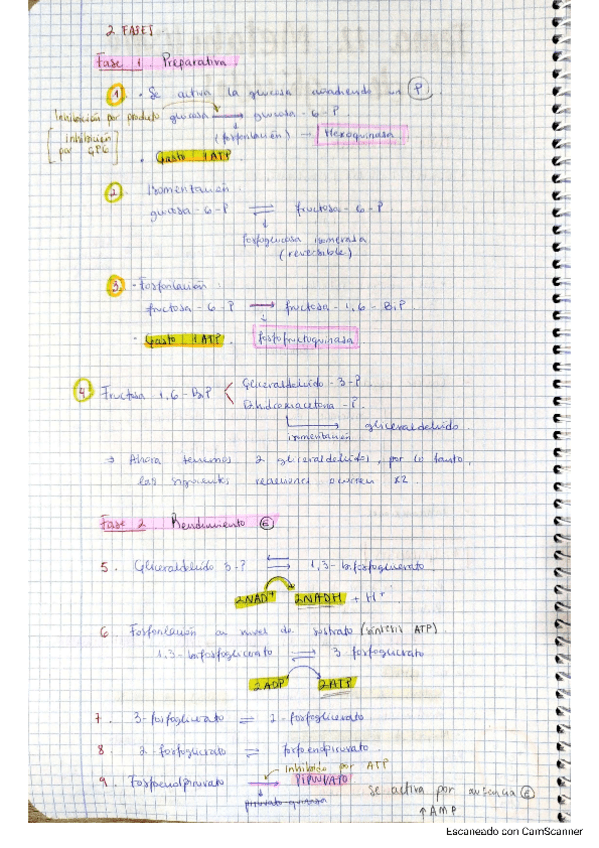 2 FASES
Fase 1 Preparativa.
1. · Se activa la glucosa añadiendo un P.
Inhibición por producto glucosa → glucosa - 6 - P
[inhibición por GP6] (fosforilación) → Hexoquinasa
· Gasto 1 ATP.
2. Isomerización
glucosa - 6 - P ⇌ fructosa - 6 - P
fosfoglucosa isomerasa
(reversible)
3. · Fosforilación
fructosa - 6 - P → fructosa - 1,6 - BiP.
· Gasto 1 ATP. fosfofructoquinasa
4. Fructosa 1,6 - BiP < Gliceraldehído - 3 - P.
Dihidroxiacetona - P.
isomerización → gliceraldehído.
→ Ahora tenemos 2 gliceraldehídos, por lo tanto,
las siguientes reacciones ocurren x2.
Fase 2 Rendimiento E
5. Gliceraldehído 3-P ⇌ 1,3 - bifosfoglicerato
2NAD+ 2NADH + H+
6. Fosforilación a nivel de sustrato (síntesis ATP)
1,3 - bifosfoglicerato ⇌ 3 fosfoglicerato
2ADP 2ATP
7. 3-fosfoglicerato ⇌ 2 - fosfoglicerato
8. 2 - fosfoglicerato ⇌ fosfoenolpiruvato.
inhibido por ATP
9. Fosfoenolpiruvato → PIRUVATO
piruvato quinasa se activa por ausencia E
↑AMP
Escaneado con CamScanner